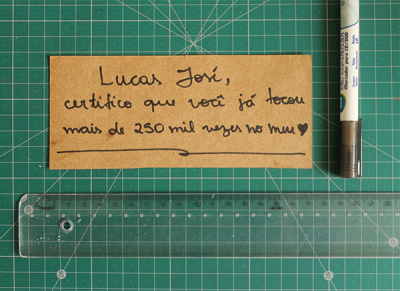 Lucas José,
certifico que você já tocou
mais de 250 mil vezes no meu ♥